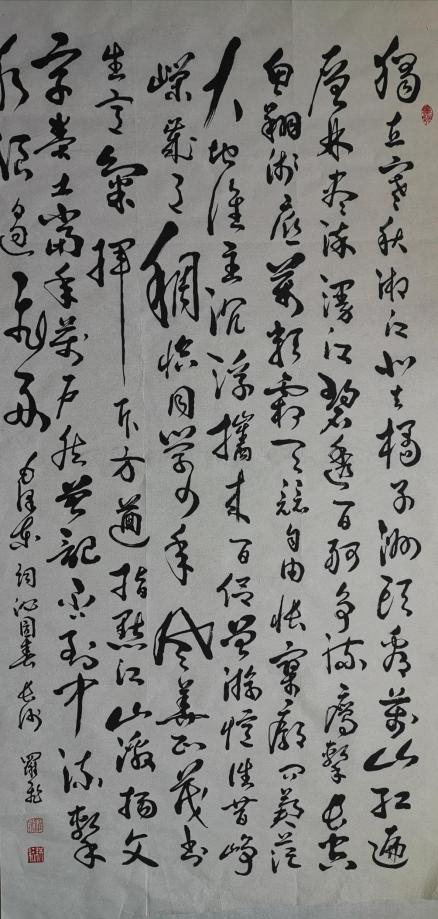 獨立寒秋湘江北去橘子洲头看萬山红遍
层林尽染漫江碧透百舸争流鹰擊长空
鱼翔浅底萬類霜天競自由怅寥廓问苍茫
大地谁主沉浮攜来百侣曾游憶往昔峥
嵘歲月稠恰同學少年风華正茂书
生意氣揮斥方遒指點江山激扬文
字糞土當年萬户侯曾記否到中流擊
水浪遏飞舟
毛泽东词沁园春长沙 羅